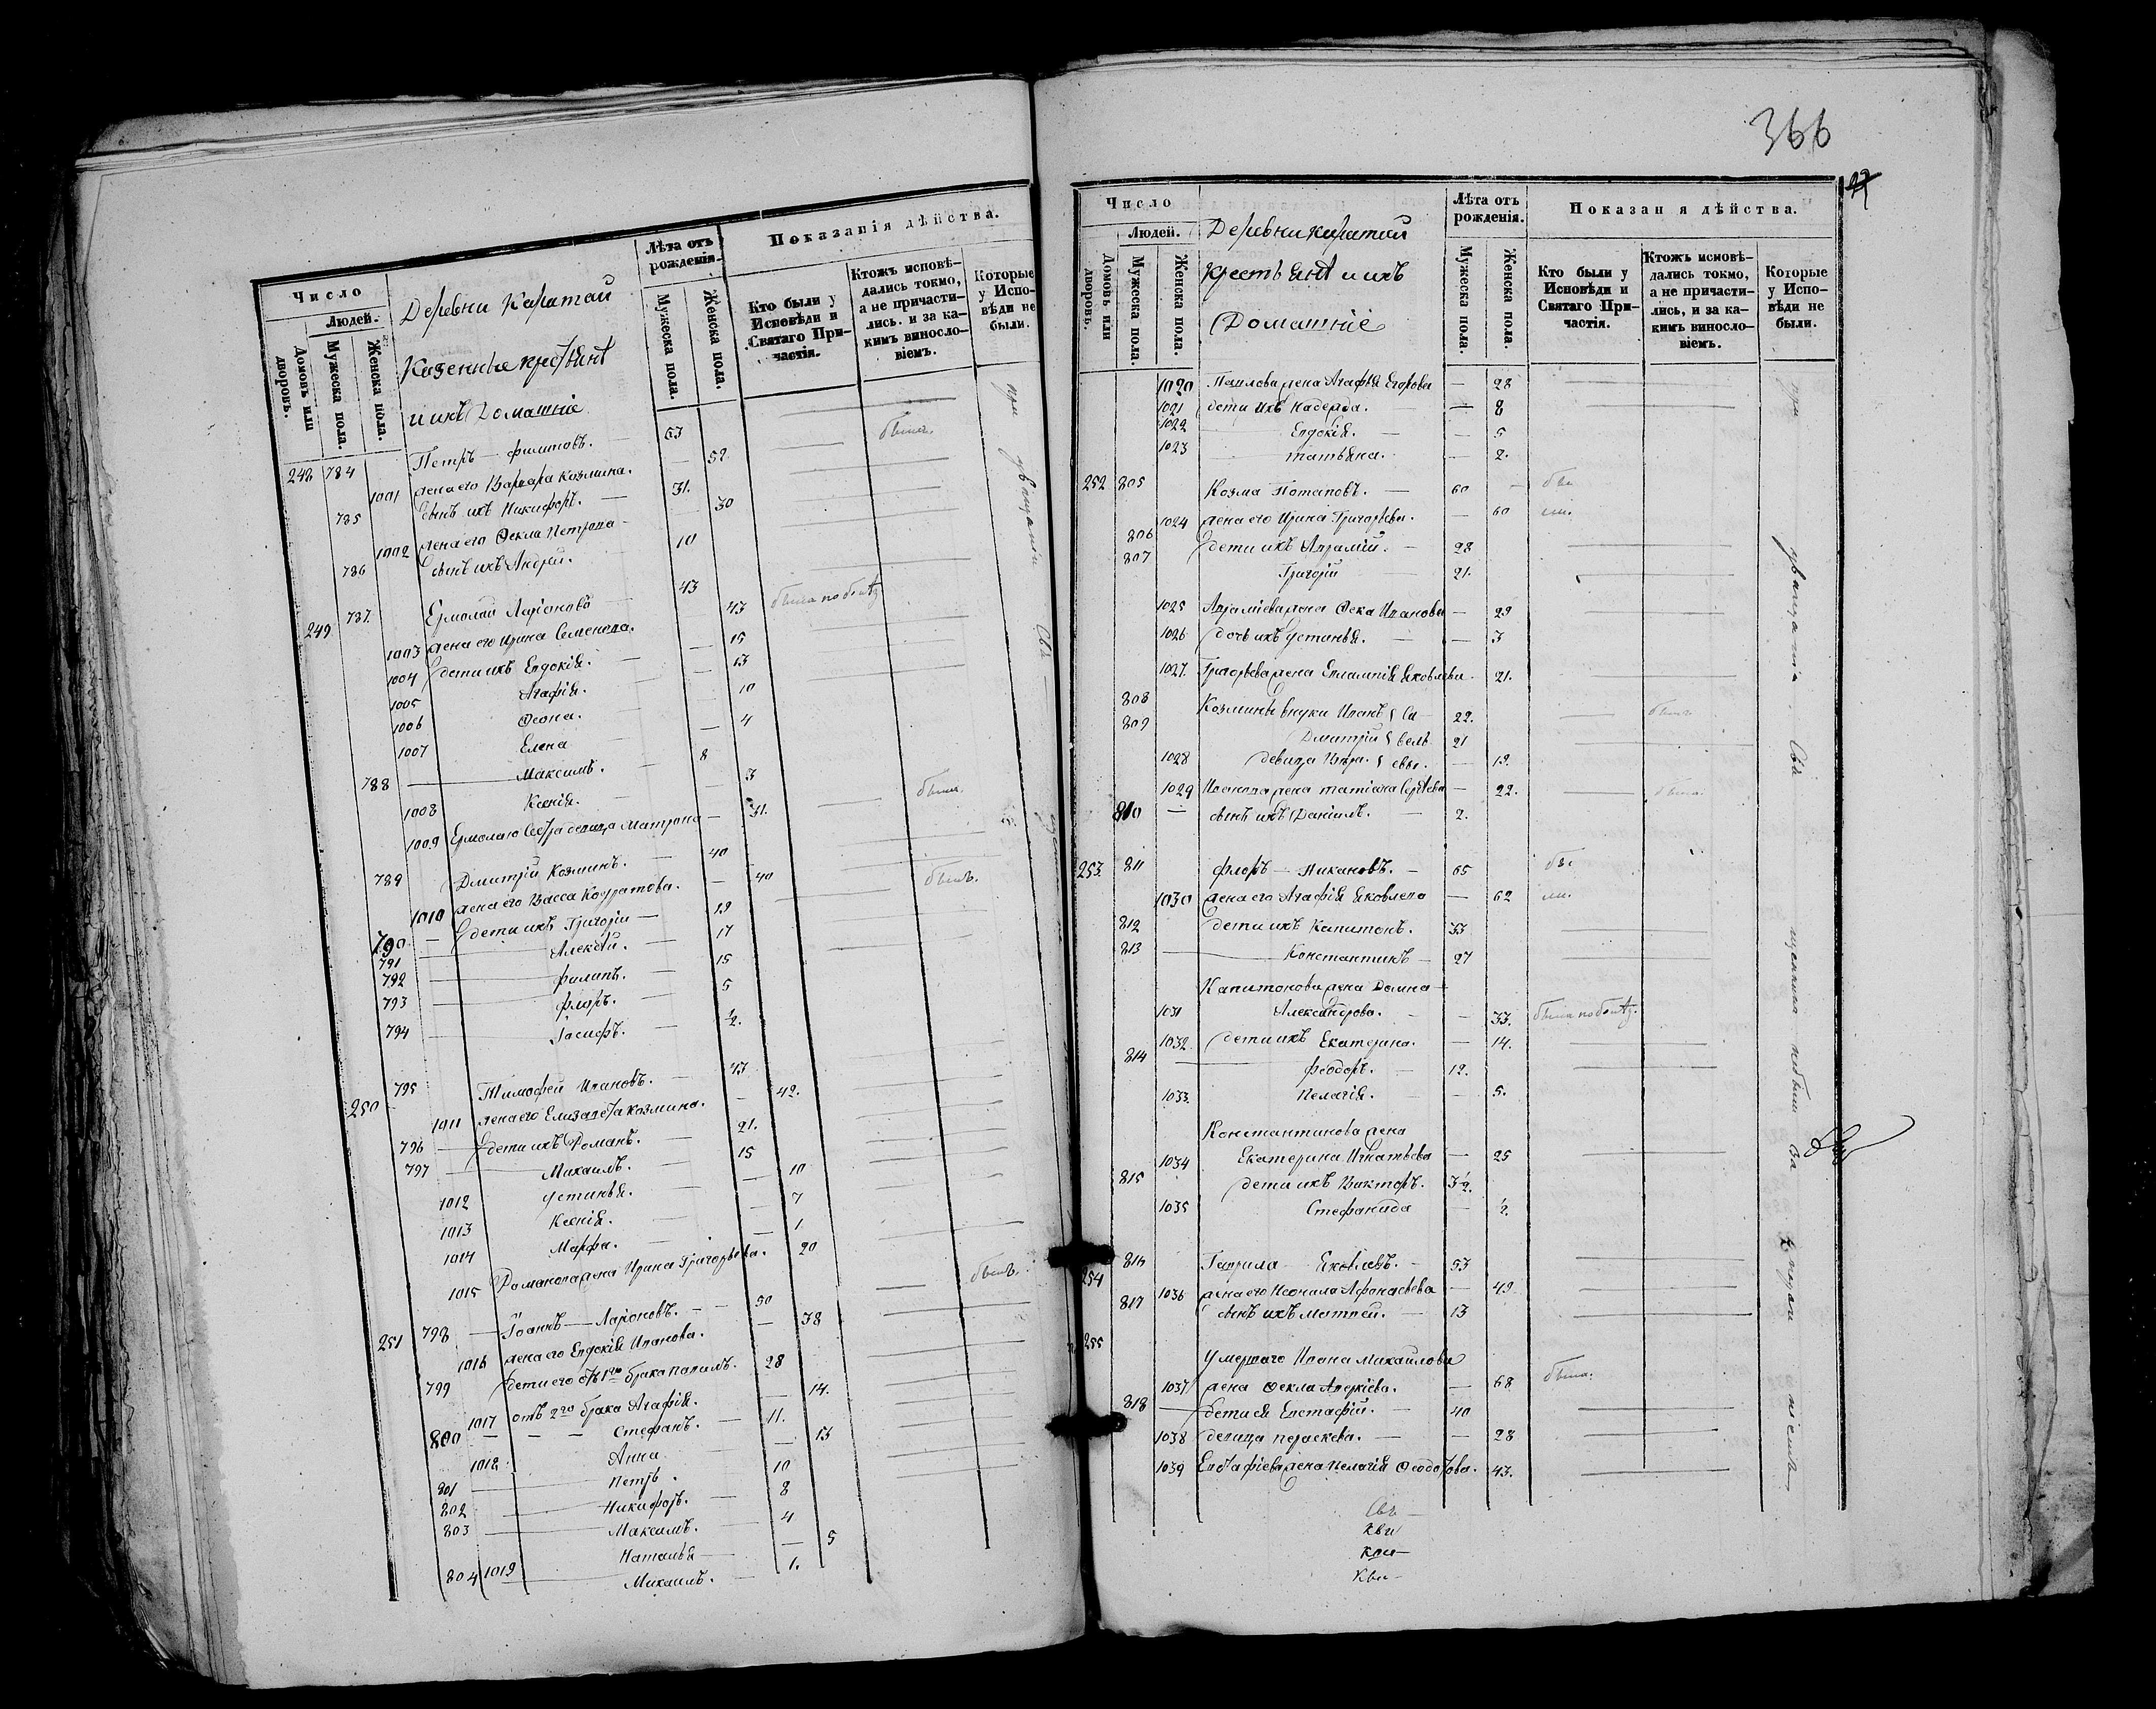 Число
Людей.
Домовъ или дворовъ.
Мужеска пола.
Женска пола.
Деревни Каратай
Казенные крестьянѣ
и ихъ Домашніе
Лѣта отъ рожденія.
Мужеска пола.
Женска пола.
Показанія дѣйства.
Кто были у Исповѣди и Святаго Причастія.
Ктожъ исповѣдались токмо, а не причастились. и за какимъ винословіемъ.
Которые у Исповѣди не были.
248 784 Петръ — Филиповъ. — 63
1001 жена его Варвара Козмина. — 52
785 сынъ ихъ Никифоръ. — 31.
1002 жена его Ѳекла Петрова — 30
786 сынъ ихъ Андрей. 10
249 787. Ермолай Ларіоновъ — 43
1003 жена его Ирина Семенова. 43 была по болѣз.
1004 дети ихъ Евдокія. — 15
1005 Агафія. — 13
1006 Ѳеона. — 10
1007 Елена — 4
788 — Максимъ. — 8
1008 Ксенія. — 3
1009 Ермолаю Сестра девица Матрона — 31.
789 Дмитрій Козминъ. — 40
1010 жена его Васса Кодратова. — 40
790 — дети ихъ Григорій — 19
791 Алексѣй. — 17
792 Филипъ. — 15
793 Флоръ. — 5
794 Іосифъ. — ½.
250 795 Тимофей Ивановъ. — 43
1011 жена его Елизавета Козмина. — 42.
796 — дети ихъ Романъ. — 21.
797 Михаилъ. — 15
1012 Устинья. — 10
1013 Ксенія. — 7
1014 Марфа. — 1
1015 Романова жена Ирина Григорьева. 20
251 798 — Іоаннъ — Ларіоновъ. — 50
1016 жена его Евдокія Иванова. — 38
799 дети его отъ 1го брака Павилъ. 28
1017 отъ 2го брака Агафія. — 14.
800 — — — Стефанъ. — 11.
1018 Анна — 13
801 Петръ. 10
802 Никифоръ. — 8
803 Максимъ. — 4
1019 Наталья — 5
804 Михаилъ. — 1.
366
Число
Людей.
Домовъ или дворовъ.
Мужеска пола.
Женска пола.
Деревни Каратай
Крестьянѣ и ихъ
Домашніе
Лѣта отъ рожденія.
Мужеска пола.
Женска пола.
Показан я дѣйства.
Кто были у Исповѣди и Святаго Причастія.
Ктожъ исповѣдались токмо, а не причастились, и за какимъ винословіемъ.
Которые у Исповѣди не были.
1020 Павлова жена Агафья Егорова — 28
1021 дети ихъ Надежда. — 8
1022 Евдокія. — 5
1023 Татьяна. — 2.
252 805 Козма Потаповъ. — 60 — бы
1024 жена его Ирина Григорьева. — 60 ли.
806 дети ихъ Авраамій. — 28
807 Григорій 21.
1025 Авраміева жена Ѳекла Иванова — 29
1026 дочь ихъ Устинья. — 3
1027. Григорьева жена Евлампія Яковлева 21.
808 Козмины внуки Иванъ Са- 22.
809 Дмитрій вель 21
1028 девица Ирин. евы. — 19.
1029 Иванова жена Татіана Сергѣева — 22.
810 — сынъ ихъ Даніилъ. — 2.
253 811 Флоръ — Никановъ. — 65 бы
1030 жена его Агафія Яковлева — 62 ли.
812 дети ихъ Капитонъ. 33
813 Константинъ — 27
Капитонова жена Домна
1031 Александрова. — 33. была по болѣз.
1032 дети ихъ Екатерина. — 14.
814 Феодоръ. — 12.
1033. Пелагія. — 5.
Константинова жена
1034 Екатерина Игнатьева — 25
815 дети ихъ Викторъ. 3½.
1035 Стефанида — ½.
254 816 Гаврила — Яковлевъ. — 53
1036 жена его Неонила Афонасьева — 49
817 сынъ ихъ Матвей. — 13
255
Умершаго Ивана Михайлова
1037 жена Ѳекла Аверкіева. — 68 была.
818 — дети ея Евстафій. — 40
1038 девица Параскева. — — 28
1039 Евстафіева жена Пелагія Ѳеодотова. 43.